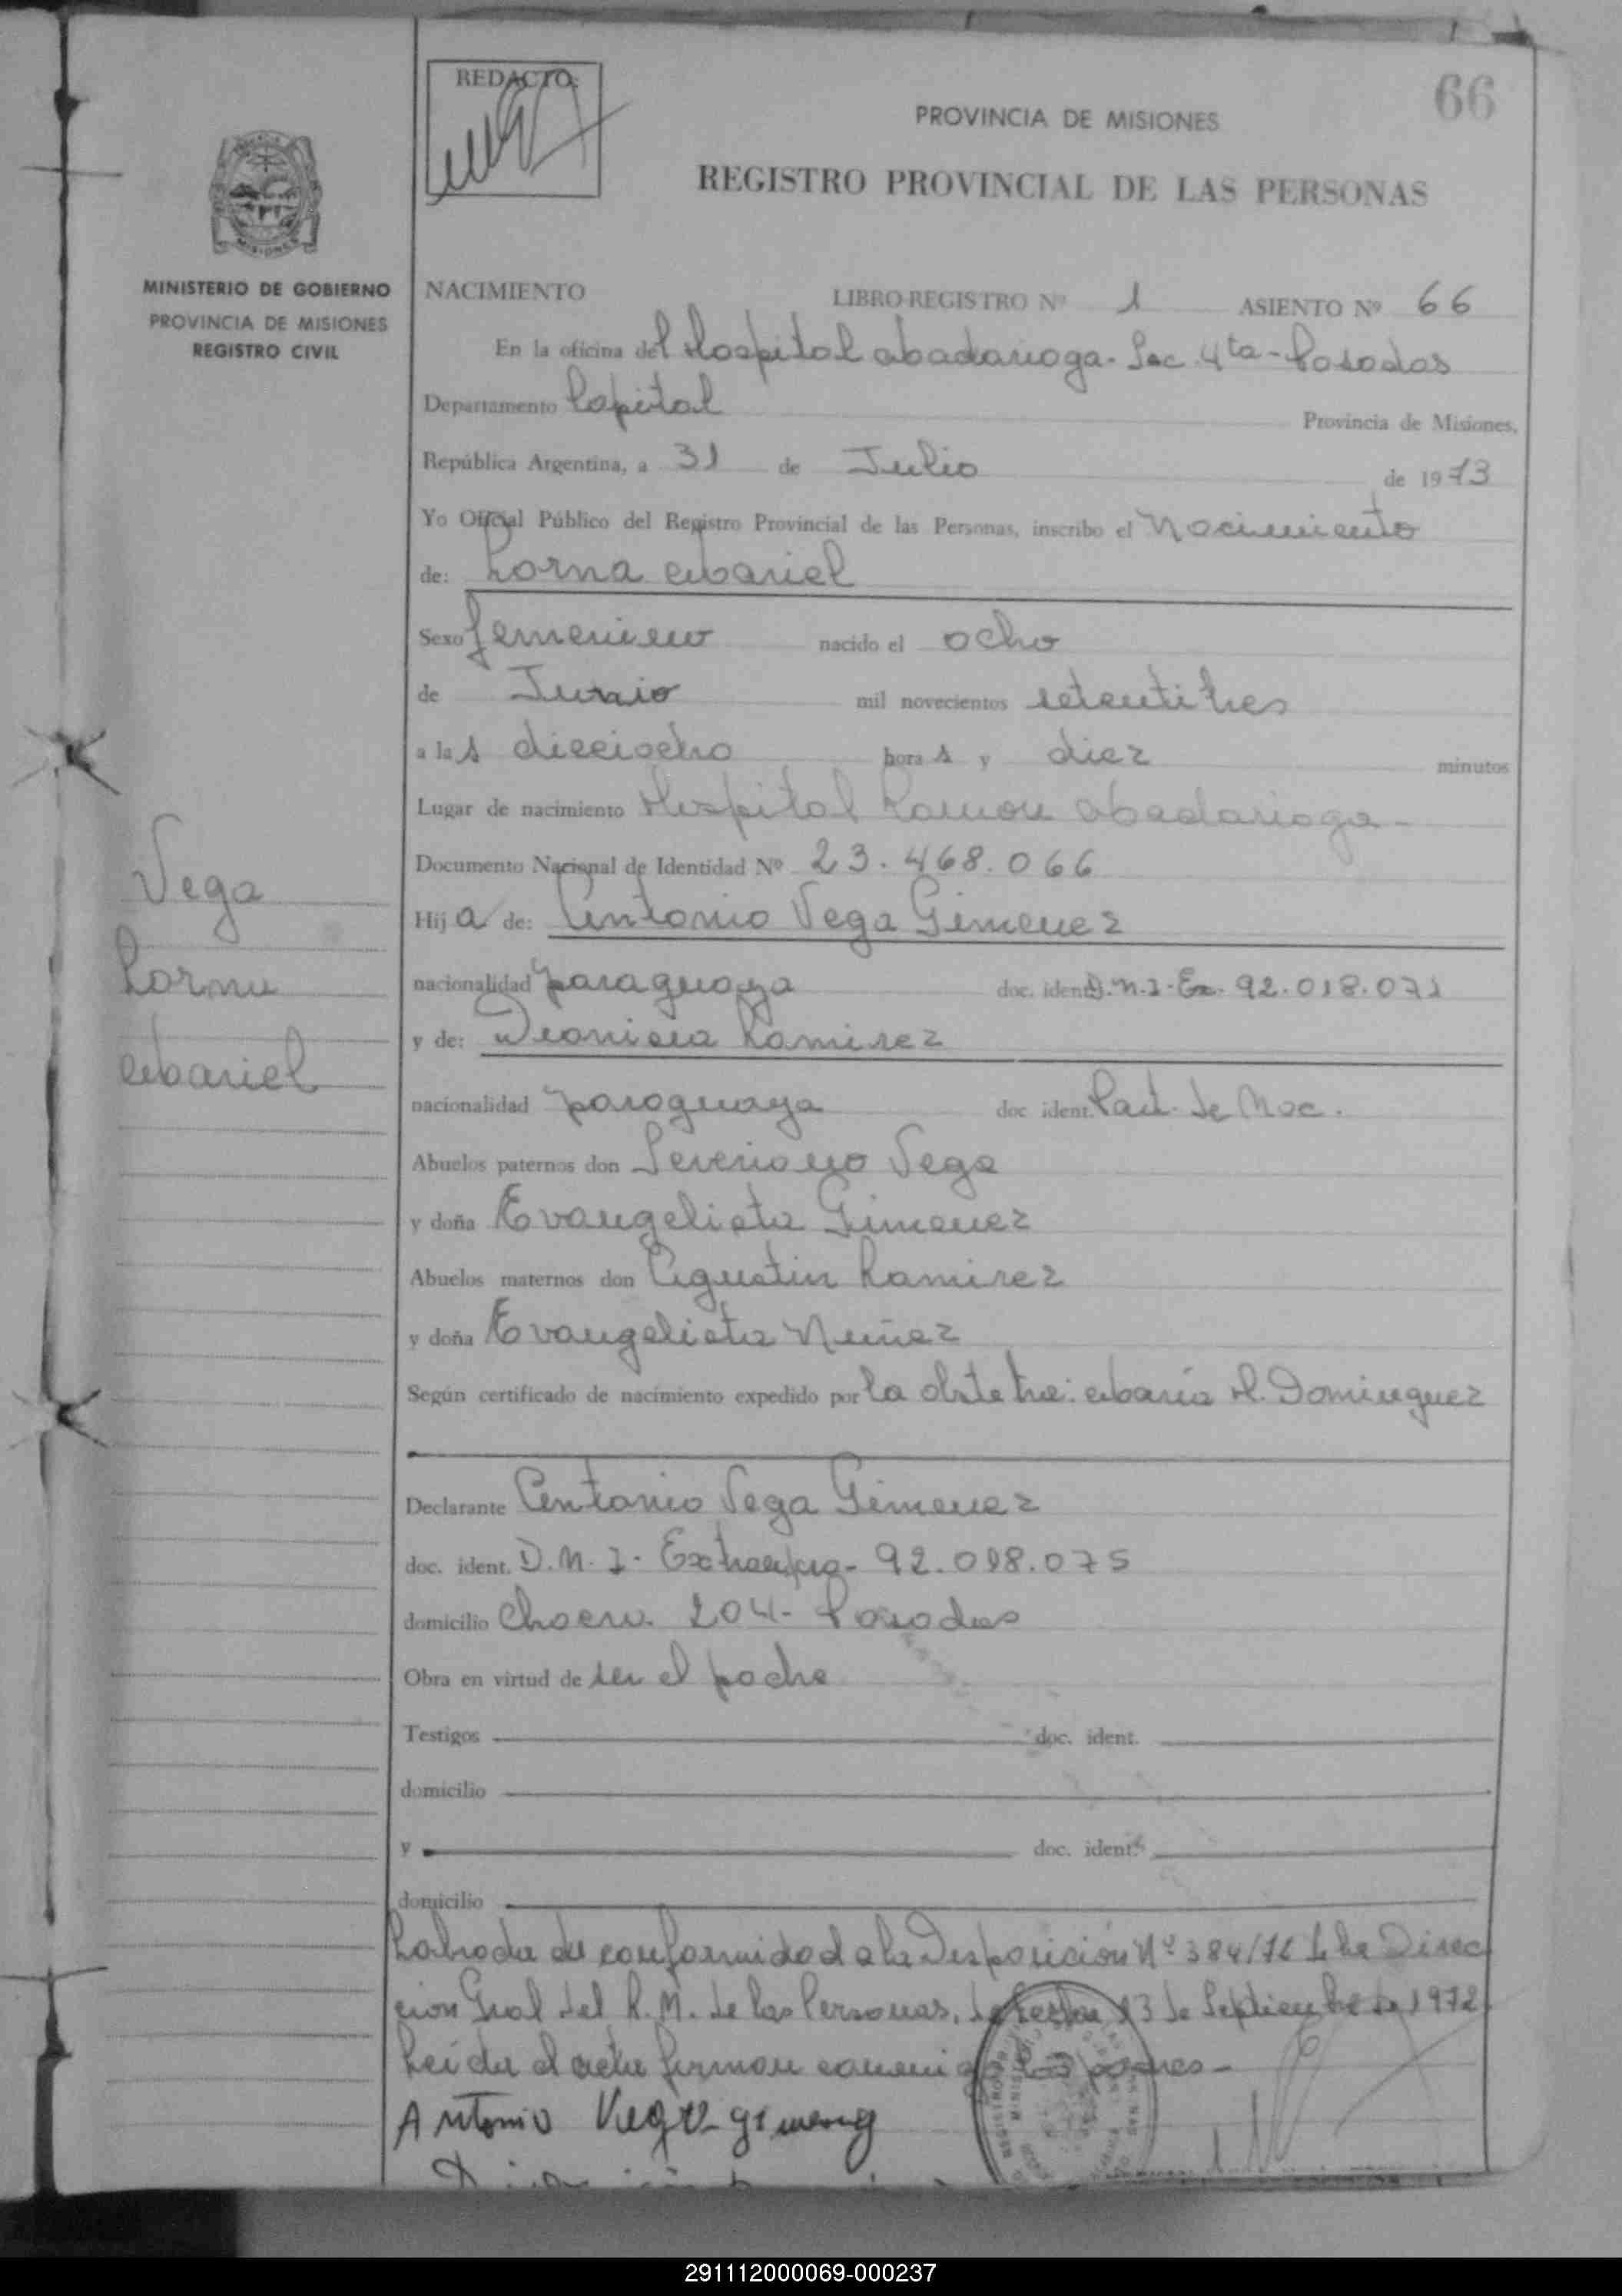 66
REDACTO:
PROVINCIA DE MISIONES
REGISTRO PROVINCIAL DE LAS PERSONAS
MISIONES
MINISTERIO DE GOBIERNO
PROVINCIA DE MISIONES
REGISTRO CIVIL
NACIMIENTO LIBRO-REGISTRO Nº 1 ASIENTO Nº 66
En la oficina del Hospital abadarioga - Sec. 4ta - Posadas
Departamento Capital Provincia de Misiones,
República Argentina, a 31 de Julio de 1973
Yo Oficial Público del Registro Provincial de las Personas, inscribo el Nacimiento
de: Lorna Mariel
Sexo femenino nacido el ocho
de Junio mil novecientos setentitres
a las dieciocho horas y diez minutos
Lugar de nacimiento Hospital Ramon abadarioga -
Documento Nacional de Identidad Nº 23.468.066
Hija de: Antonio Vega Gimenez
nacionalidad paraguaya doc. ident. D.N.I. Ex. 92.018.071
y de: Dionisia Ramirez
nacionalidad paraguaya doc ident. Part. de Nac.
Abuelos paternos don Severiano Vega
y doña Evangelista Gimenez
Abuelos maternos don Agustin Ramirez
y doña Evangelista Nuñez
Según certificado de nacimiento expedido por la obstetra: Maria H. Dominguez
Declarante Antonio Vega Gimenez
doc. ident. D.N.I. Extranjero - 92.018.075
domicilio 204 - Posadas
Obra en virtud de ser el padre
Testigos doc. ident.
domicilio
y doc. ident.
domicilio
Labrada de conformidad a la Disposición Nº 384/72 de la Direc
cion Gral del R. M. de las Personas, de fecha 13 de Septiembre de 1972.
Leida el acta firman conmigo los padres -
Antonio Vega gimenez
Vega
Lorna
Mariel
291112000069-000237